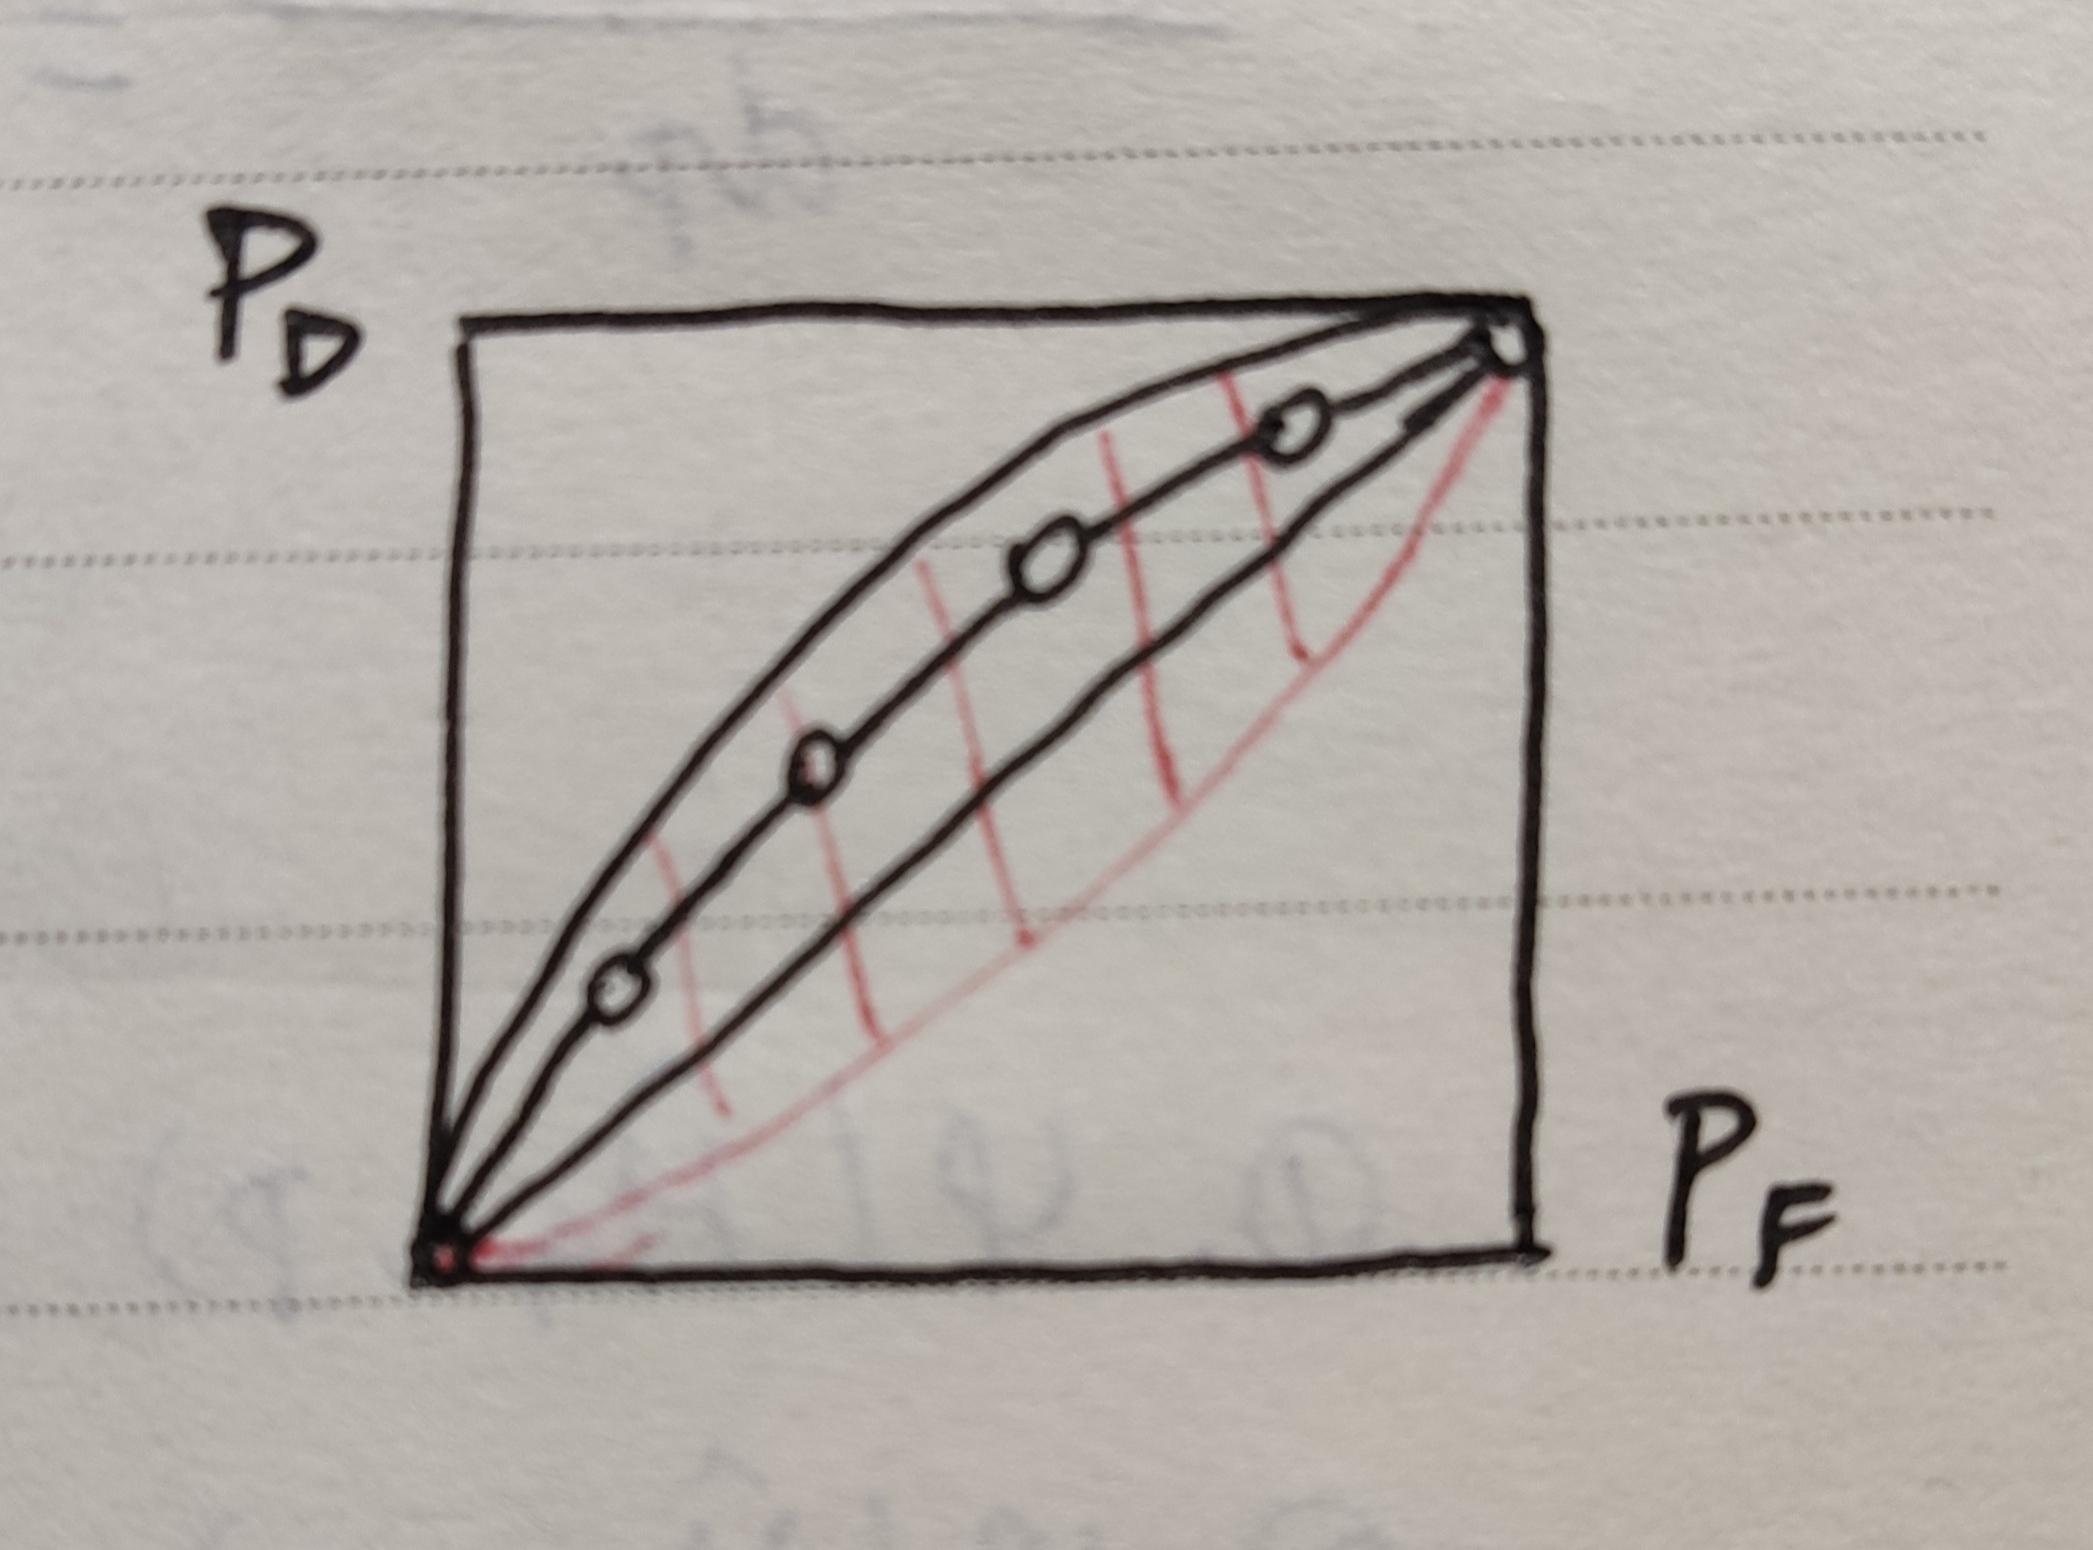 P_D
P_F